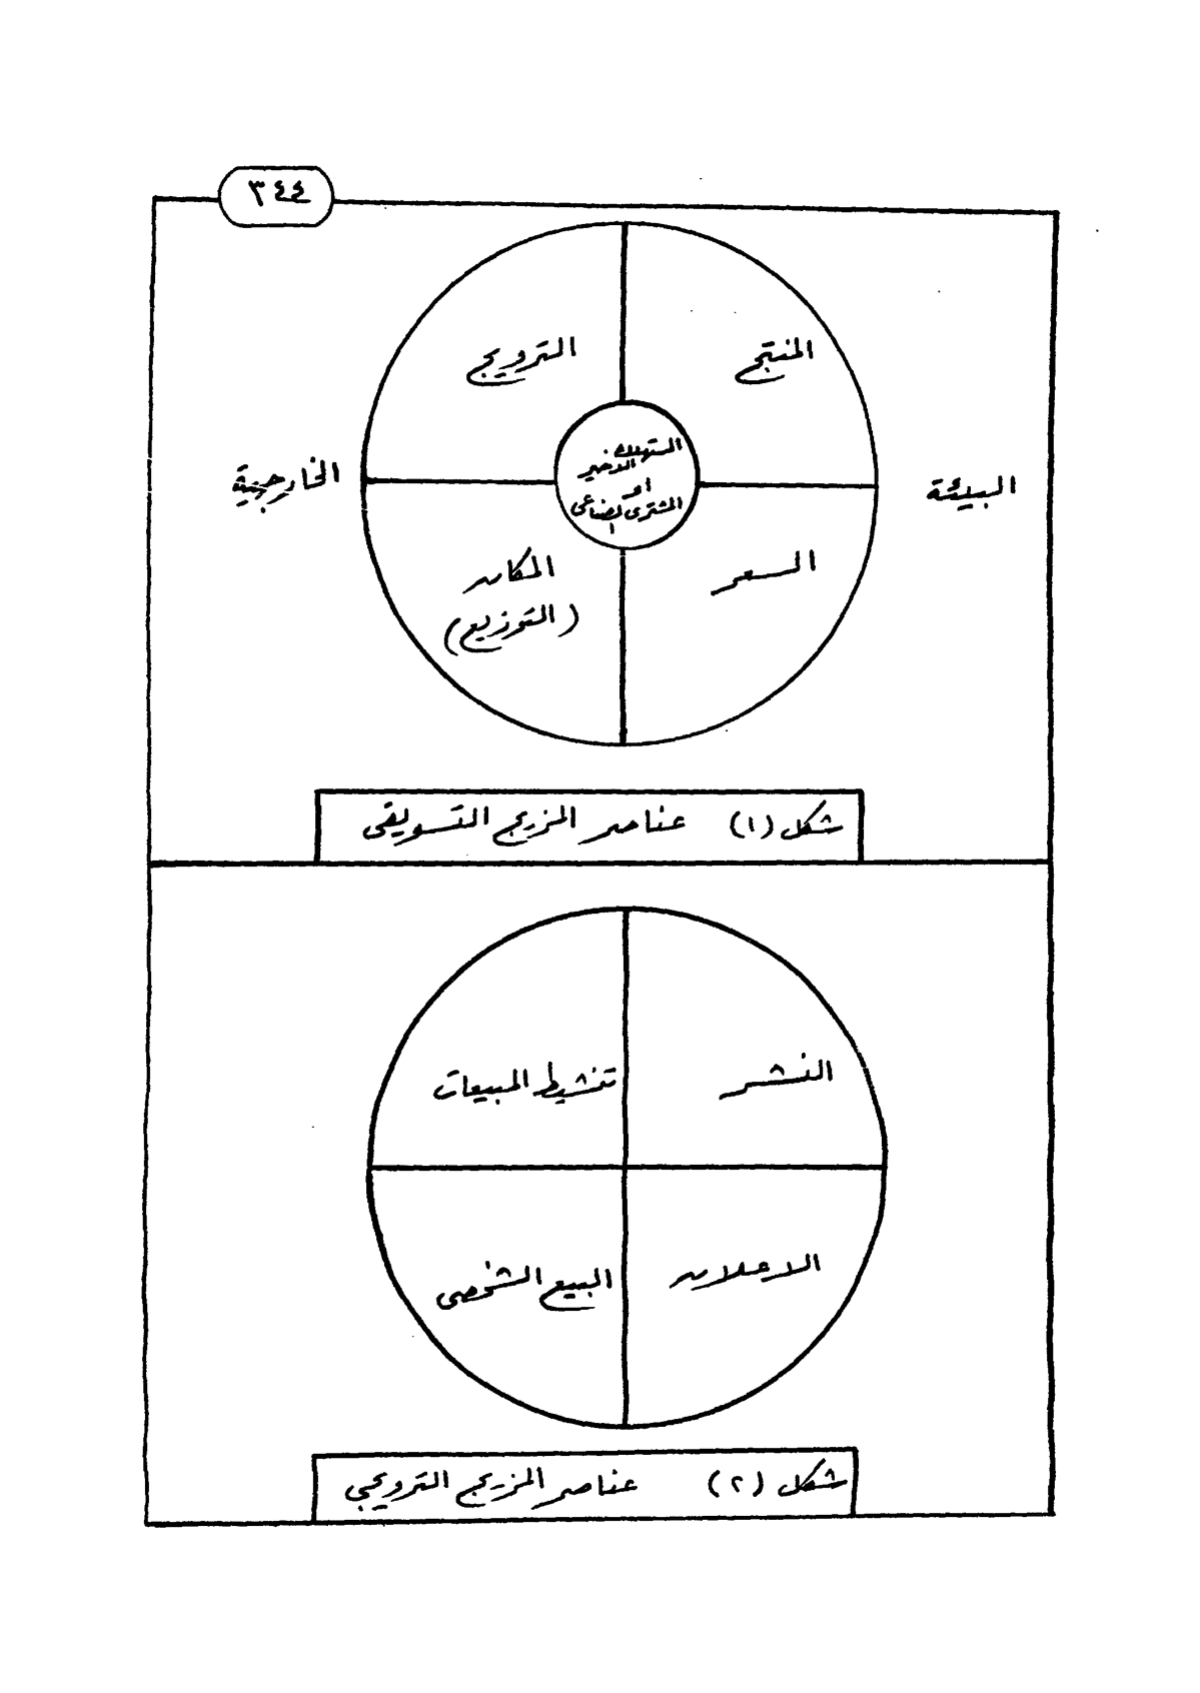 ٣٤٤
المنتج
الترويج
المستهلك
الاخير
او
المشترى الصناعى
البيئة
الخارجية
السعر
المكان
(التوزيع)
شكل (١) عناصر المزيج التسويقى
النشر
تنشيط المبيعات
الاعلان
البيع الشخصى
شكل (٢) عناصر المزيج الترويجى